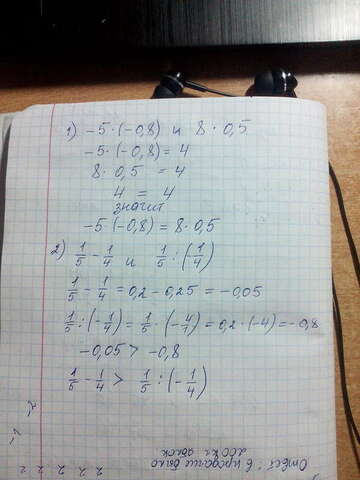 1) -5·(-0,8) и 8·0,5
-5·(-0,8) = 4
8·0,5 = 4
4 = 4
значит
-5·(-0,8) = 8·0,5
2) 1/5 - 1/4 и 1/5 : (-1/4)
1/5 - 1/4 = 0,2 - 0,25 = -0,05
1/5 : (-1/4) = 1/5 · (-4/1) = 0,2·(-4) = -0,8
-0,05 > -0,8
1/5 - 1/4 > 1/5 : (-1/4)
Ответ: в продаже было
200 кг яблок